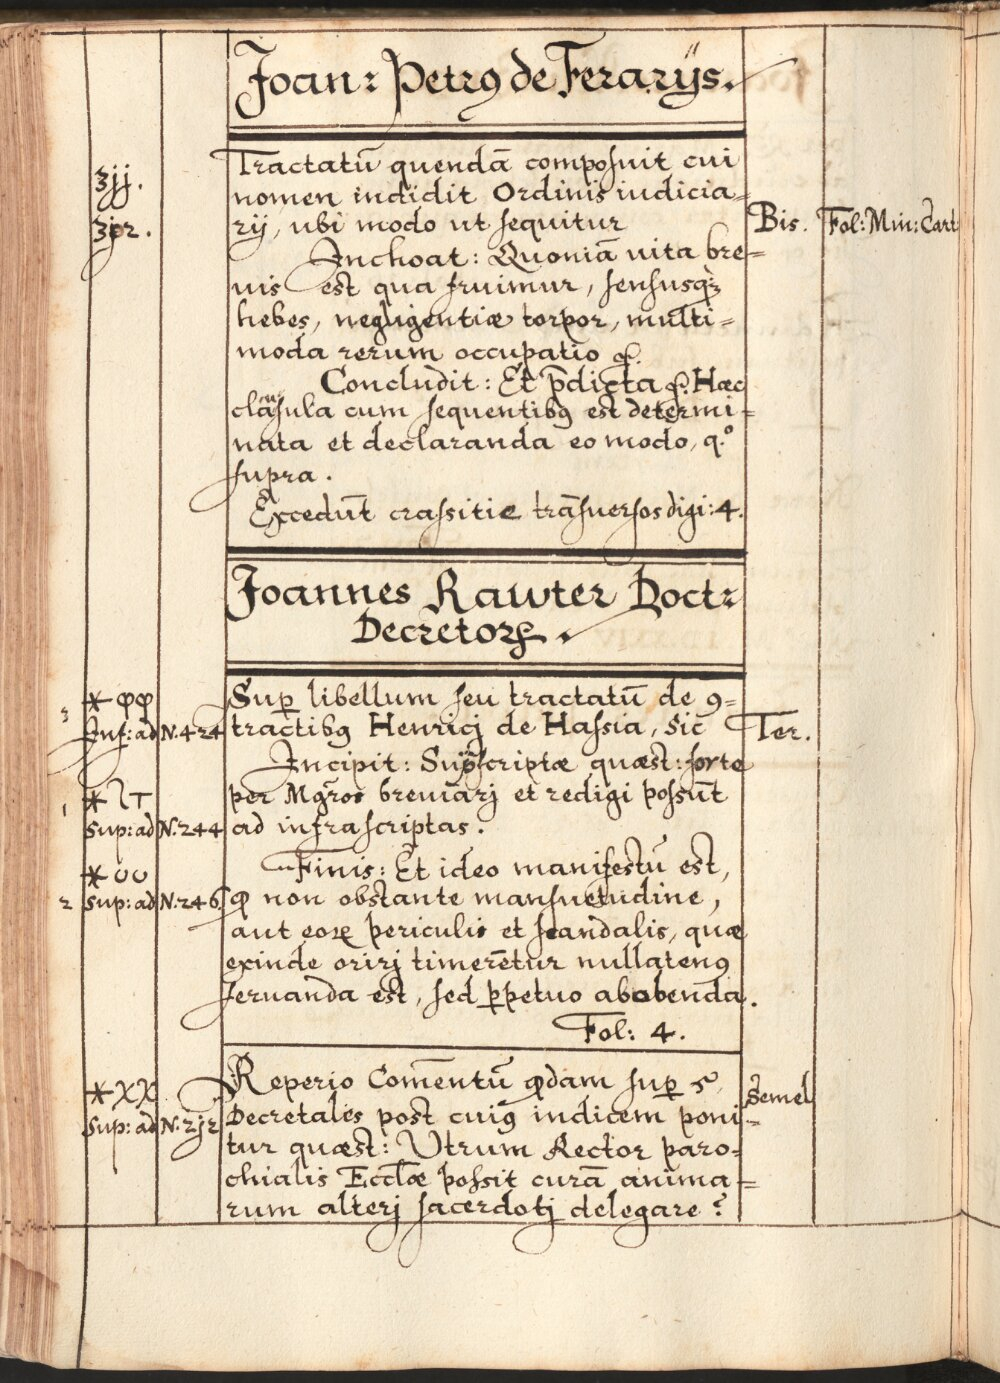 Joan: Petr9 de Ferarijs.
Tractatū quendā composuit cui
3jj.
nomen indidit Ordinis iudicia=
3j2.
rij, ubi modo ut sequitur
Bis.
Fol: Min: Cart
Inchoat: Quoniā vita bre=
uis est qua fruimur, sensusq3
hebes, negligentiæ torpor, multi=
moda rerum occupatio &.
Concludit: Et p̄dicta &. Hæc
clausula cum sequentib9 est determi=
nata et declaranda eo modo, q.o
supra.
Excedūt crassitie trāsuersos digi: 4.
Joannes Rawter Doct:
Decretorꝝ.
* φφ
Sup libellum seu tractatū de 9=
3
Inf: ad N. 424
tractib9 Henricj de Hassia, sic
Ter.
Incipit: Supscriptæ quæst: forte
* lT
per Mgr̄os breuiarj et redigi possūt
1
Sup: ad N. 244
ad infrascriptas.
* υυ
Finis: Et ideo manifestū est,
2
Sup: ad N. 246
ꝙ non obstante mansuetudine,
aut eorꝝ periculis et scandalis, quæ
exinde orirj timerētur nullaten9
seruanda est, sed ꝑpetuo abolenda.
Fol: 4.
* XX
Reperio Comentū qdam sup 5
Semel
Sup: ad N. 2j2
Decretales post cui9 indicem poni=
tur quæst: Utrum Rector paro=
chialis Eccl̄æ possit curā anima=
rum alterj sacerdotj delegare?